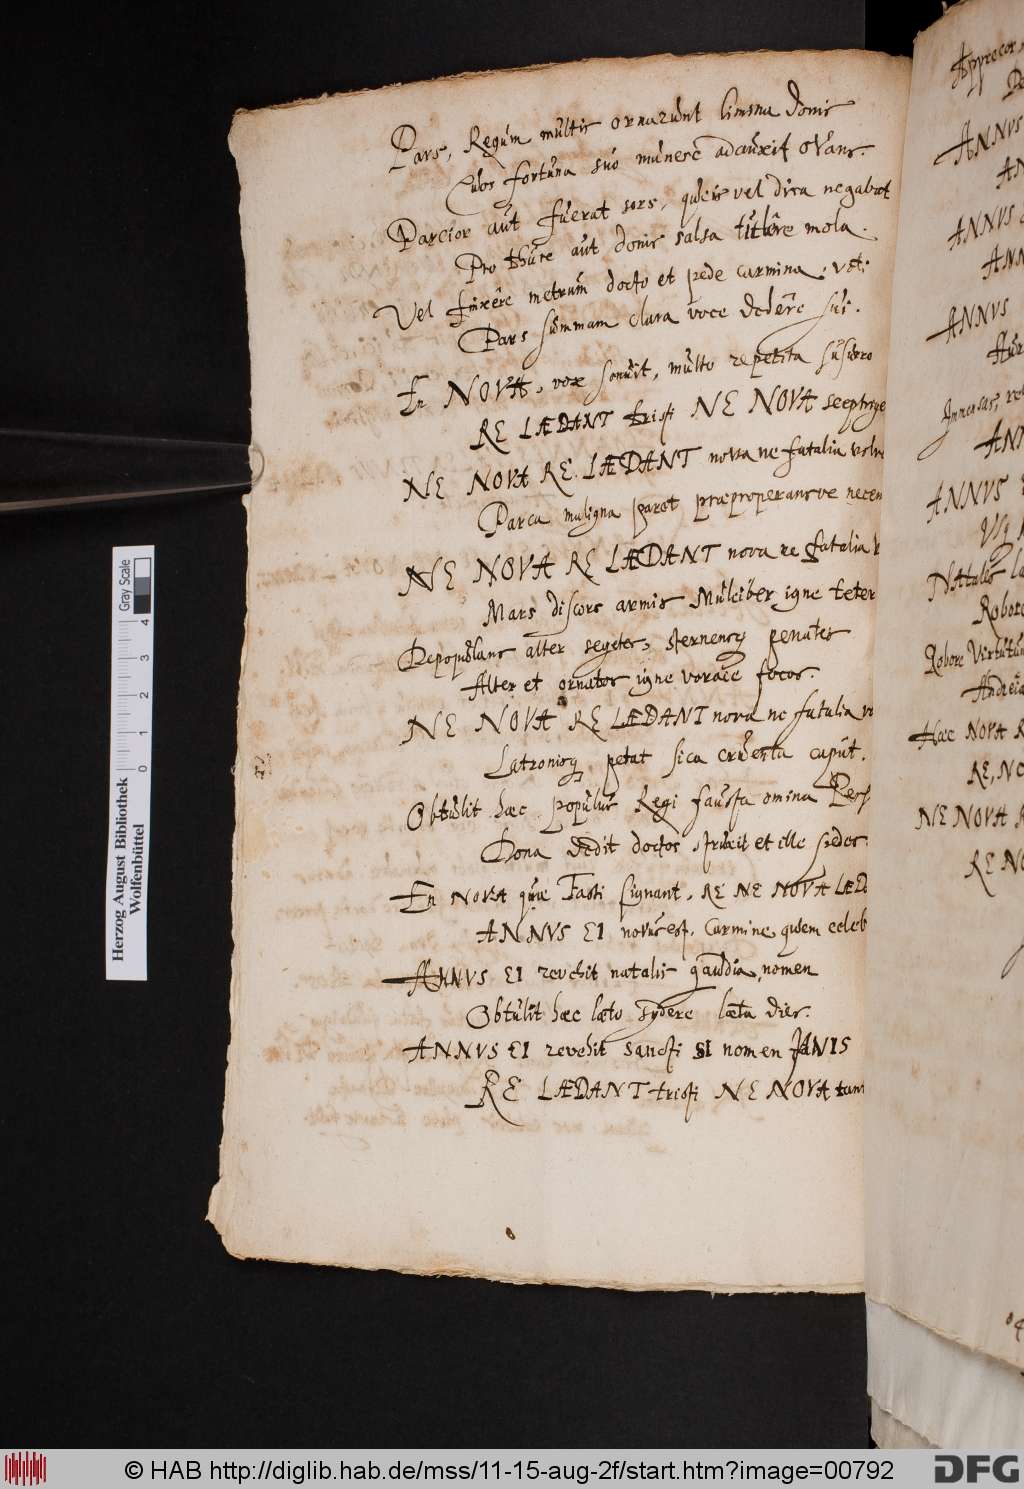 Pars, Regum multis ornarunt limina donis
Quos fortuna suo munere adauxit ovans.
Parcior aut fuerat sors, queis vel dira negabat
Pro thure aut donis salsa titure mola.
Vel finxere metrum docto et pede carmina: vel:
Pars summam clara voce dedere sui.
En NOVA, vox sonuit, multo repetita susurro
RE LÆDANT tristi NE NOVA sceptrige
NE NOVA RE LÆDANT nova ne fatalia volve
Parca maligna paret præproperansve necem
NE NOVA RE LÆDANT nova re fatalia v
Mars discors armis Mulciber igne teter
Depopulans alter segetes, sternensq penates
Alter et ornatos igne vorace focos.
NE NOVA RE LÆDANT nova ne fatalia vo
Latronisq petat sica cruenta caput.
Obtulit hæc populus Regi fausta omina Pers
Dona dedit doctos struxit et ille sedes.
En NOVA quæ Fasti signant, RE NE NOVA LÆD
ANNVS EI novus est, Carmine quem celeb
ANNVS EI revehit natalis gaudia, nomen
Obtulit hæc læto sydere læta dies.
ANNVS EI revehit sancti SI nomen JANIS
RE LÆDANT tristi NE NOVA tam
Apprecor,
ANNVS
AN
ANNVS
ANN
ANNVS
Aur
Inncisas, re
ANN
ANNVS
Usq
NAtalis la
Robore
Robore Virtutum
Andreia
Hæc NOVA R
RE, NO
NE NOVA R
RE NO
Herzog August Bibliothek
Wolfenbüttel
Gray Scale
0 1 2 3 4
© HAB http://diglib.hab.de/mss/11-15-aug-2f/start.htm?image=00792
DFG